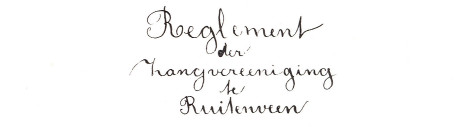 Reglement
der
Zangvereeniging
te
Ruitenveen